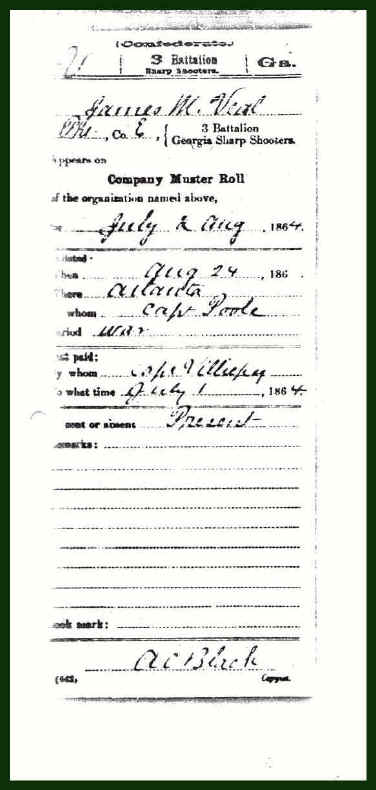 (Confederate.)
3 Battalion
Sharp Shooters.
Ga.
James M. Veal
Pvt, Co. E, 3 Battalion
Georgia Sharp Shooters.
ppears on
Company Muster Roll
f the organization named above,
July & Aug, 1864.
listed:
hen Aug 24, 186 .
here Atlanta
whom Capt Poole
eriod war
st paid:
y whom Capt
o what time July 1, 1864.
sent or absent Present
emarks:
ook mark:
A C Birch
(642)
Copyist.